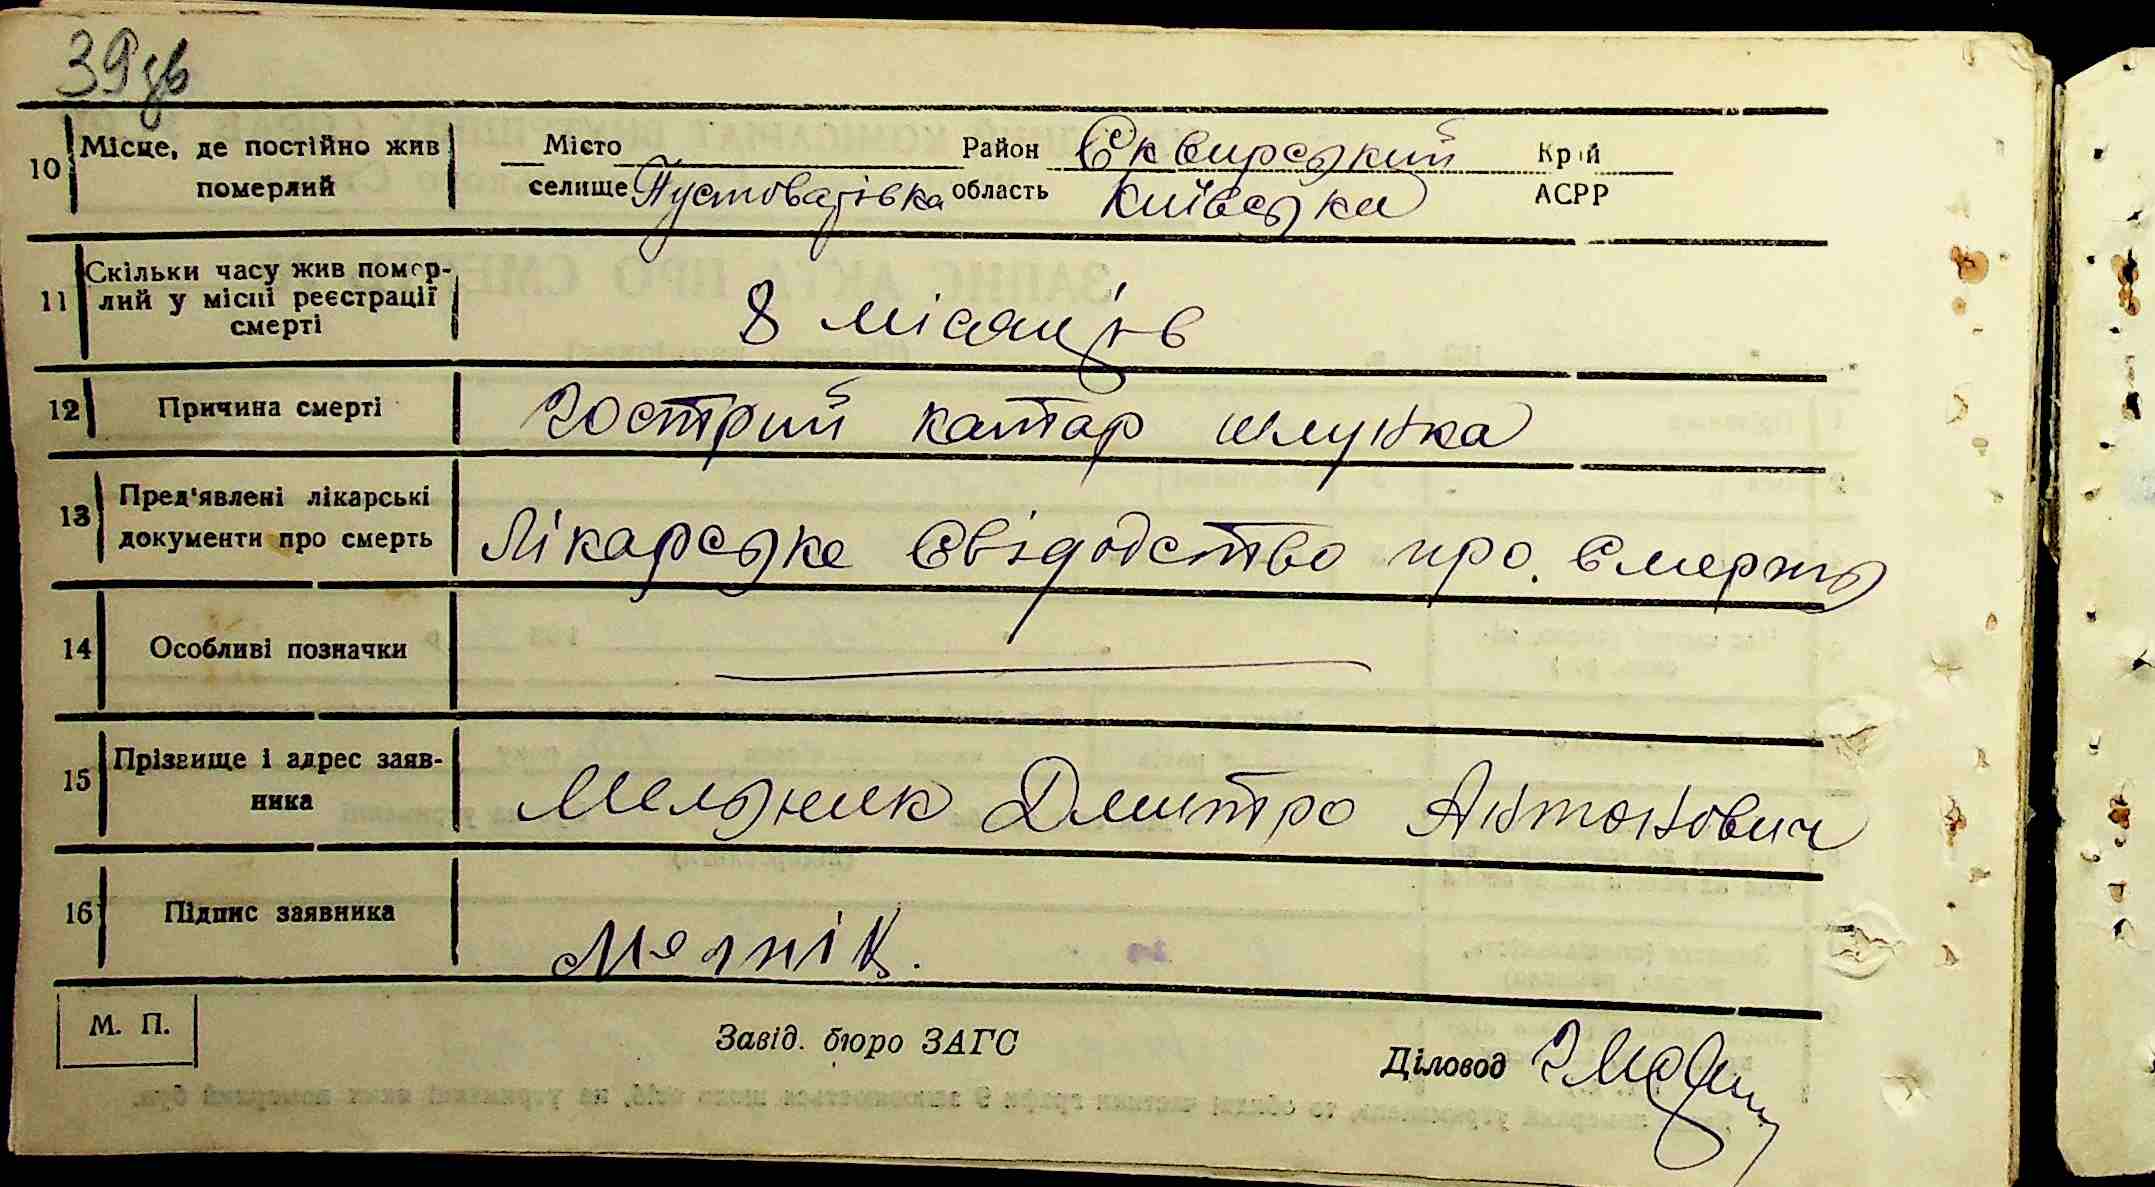 39 зв
10 Місце, де постійно жив Місто Район Сквирський Край
померлий селище Пустоварівка область Київська АСРР
Скільки часу жив помер-
11 лий у місці реєстрації 8 місяців
смерті
12 Причина смерті гострий катар шлунка
Пред'явлені лікарські
13 документи про смерть Лікарське свідодство про смерть
14 Особливі позначки
Прізвище і адрес заяв-
15 ника Мельник Дмитро Антонович
16 Підпис заявника
М. П. Завід. бюро ЗАГС Діловод